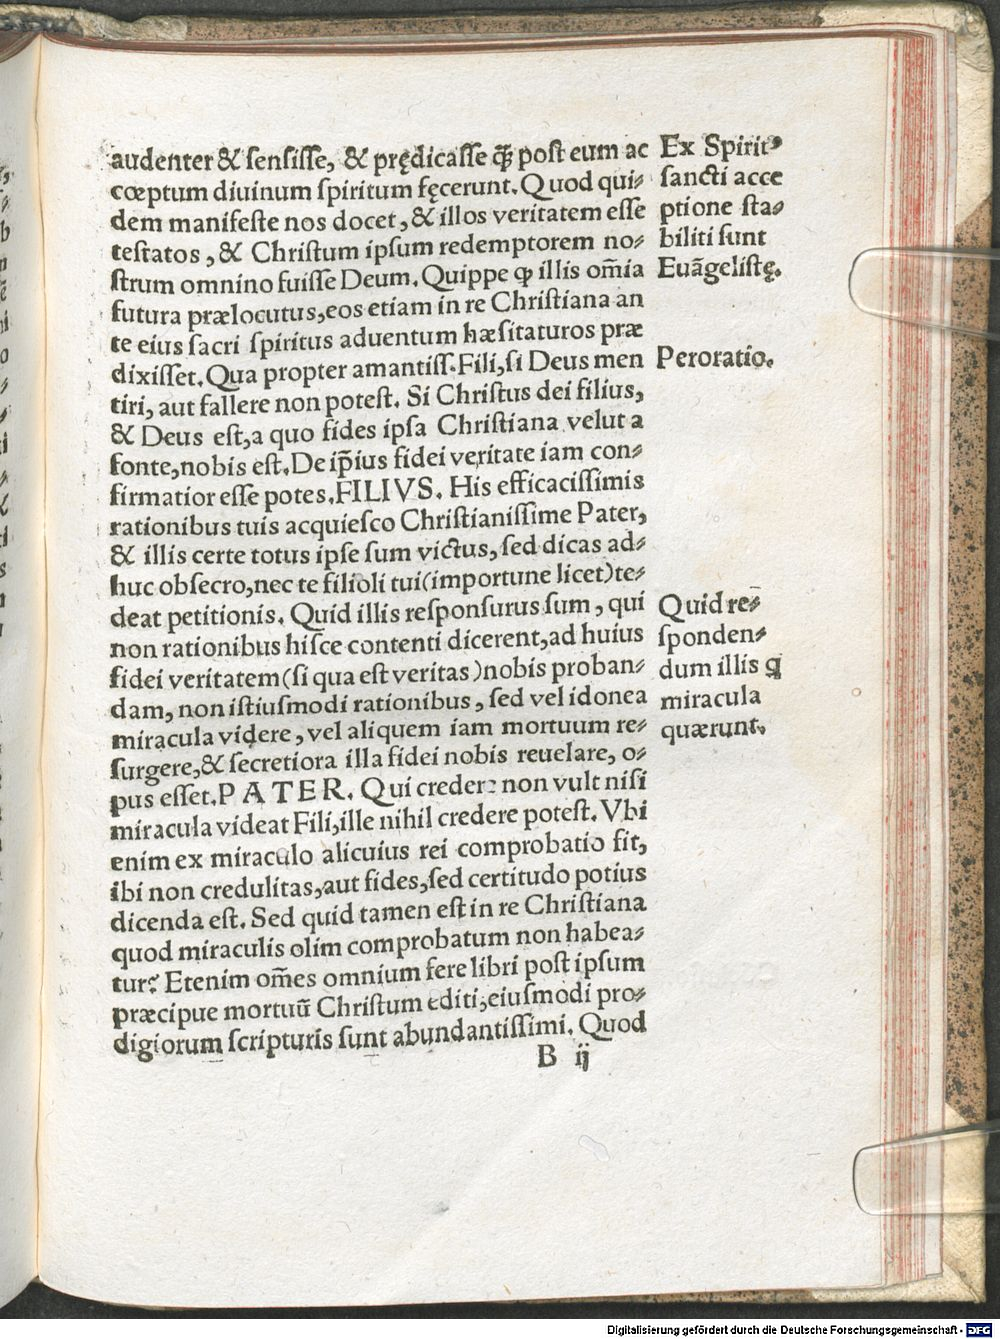 audenter & sensisse, & prędicasse ꝙ̃ post eum ac
cœptum diuinum spiritum fęcerunt. Quod qui⸗
dem manifeste nos docet, & illos veritatem esse
testatos, & Christum ipsum redemptorem no⸗
strum omnino fuisse Deum. Quippe ꝙ illis om̃ia
futura prælocutus, eos etiam in re Christiana an
te eius sacri spiritus aduentum hæsitaturos præ
dixisset. Qua propter amantiss. Fili, si Deus men
tiri, aut fallere non potest. Si Christus dei filius,
& Deus est, a quo fides ipsa Christiana velut a
fonte, nobis est. De ip̃ius fidei veritate iam con⸗
firmatior esse potes. FILIVS. His efficacissimis
rationibus tuis acquiesco Christianissime Pater,
& illis certe totus ipse sum victus, sed dicas ad⸗
huc obsecro, nec te filioli tui (importune licet) te⸗
deat petitionis. Quid illis responsurus sum, qui
non rationibus hisce contenti dicerent, ad huius
fidei veritatem (si qua est veritas) nobis proban⸗
dam, non istiusmodi rationibus, sed vel idonea
miracula videre, vel aliquem iam mortuum re⸗
surgere, & secretiora illa fidei nobis reuelare, o⸗
pus esset. PATER. Qui credere non vult nisi
miracula videat Fili, ille nihil credere potest. Vbi
enim ex miraculo alicuius rei comprobatio fit,
ibi non credulitas, aut fides, sed certitudo potius
dicenda est. Sed quid tamen est in re Christiana
quod miraculis olim comprobatum non habea⸗
tur? Etenim om̃es omnium fere libri post ipsum
præcipue mortuũ Christum editi, eiusmodi pro⸗
digiorum scripturis sunt abundantissimi. Quod
B ij
Ex Spirit⁹
sancti acce
ptione sta⸗
biliti sunt
Euãgelistę.
Peroratio.
Quid re⸗
sponden⸗
dum illis q
miracula
quærunt.
Digitalisierung gefördert durch die Deutsche Forschungsgemeinschaft - DFG